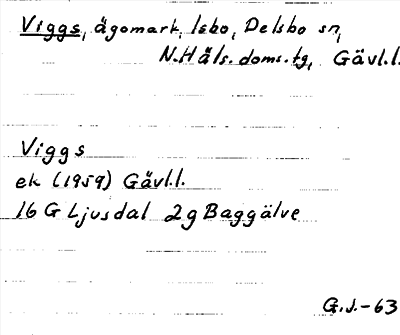 Viggs, ägomark, Isbo, Delsbo sn,
N.Häls. doms.tg, Gävl.l.
Viggs
ek (1959) Gävl.l.
16 G Ljusdal 2g Baggälve
G.J.-63